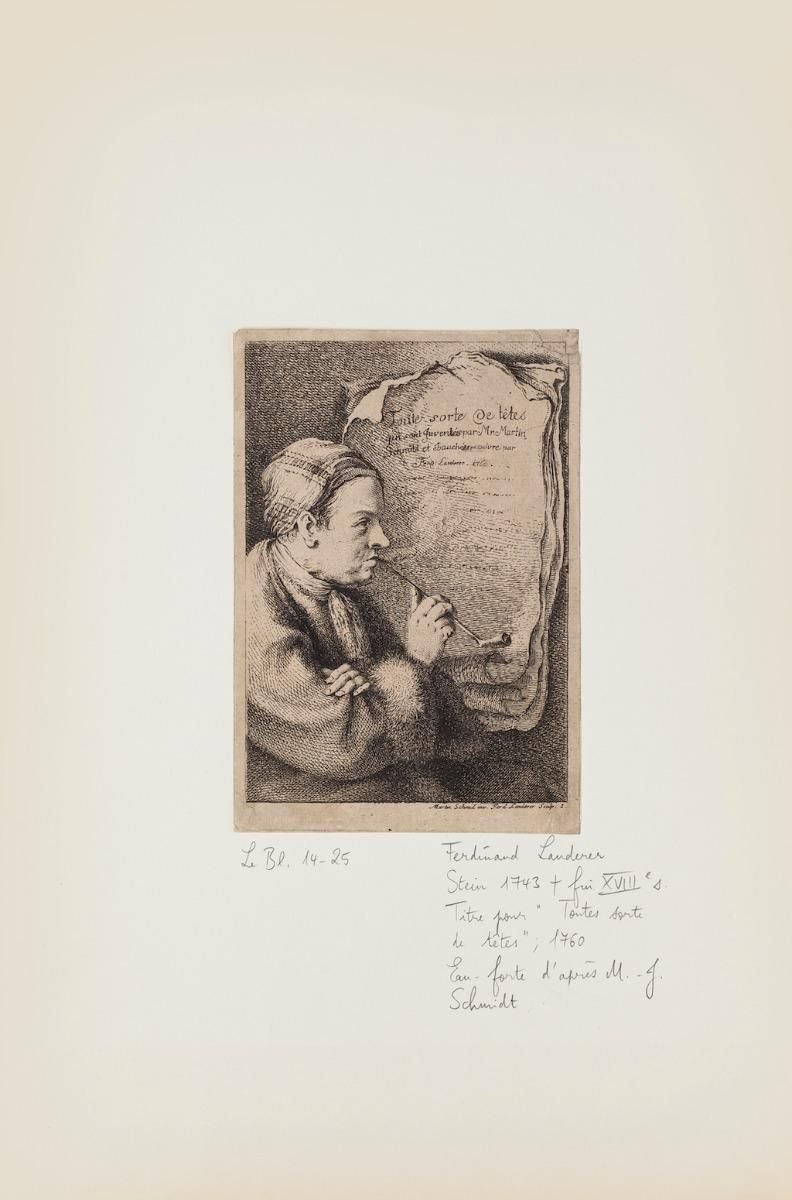 Toutte sorte De têtes
qui sont Inventées par Mr. Martin
Schmitd et Ebauchée en cuivre par
Ferd. Landerer. 1760.
Martin Schmid inv. Ferd. Landerer Sculp. 1
Le Bl. 14-25
Ferdinand Landerer
Stein 1743 † fin XVIIIe s.
Titre pour " Toutes sorte
de têtes" ; 1760
Eau-forte d'après M.-J.
Schmidt